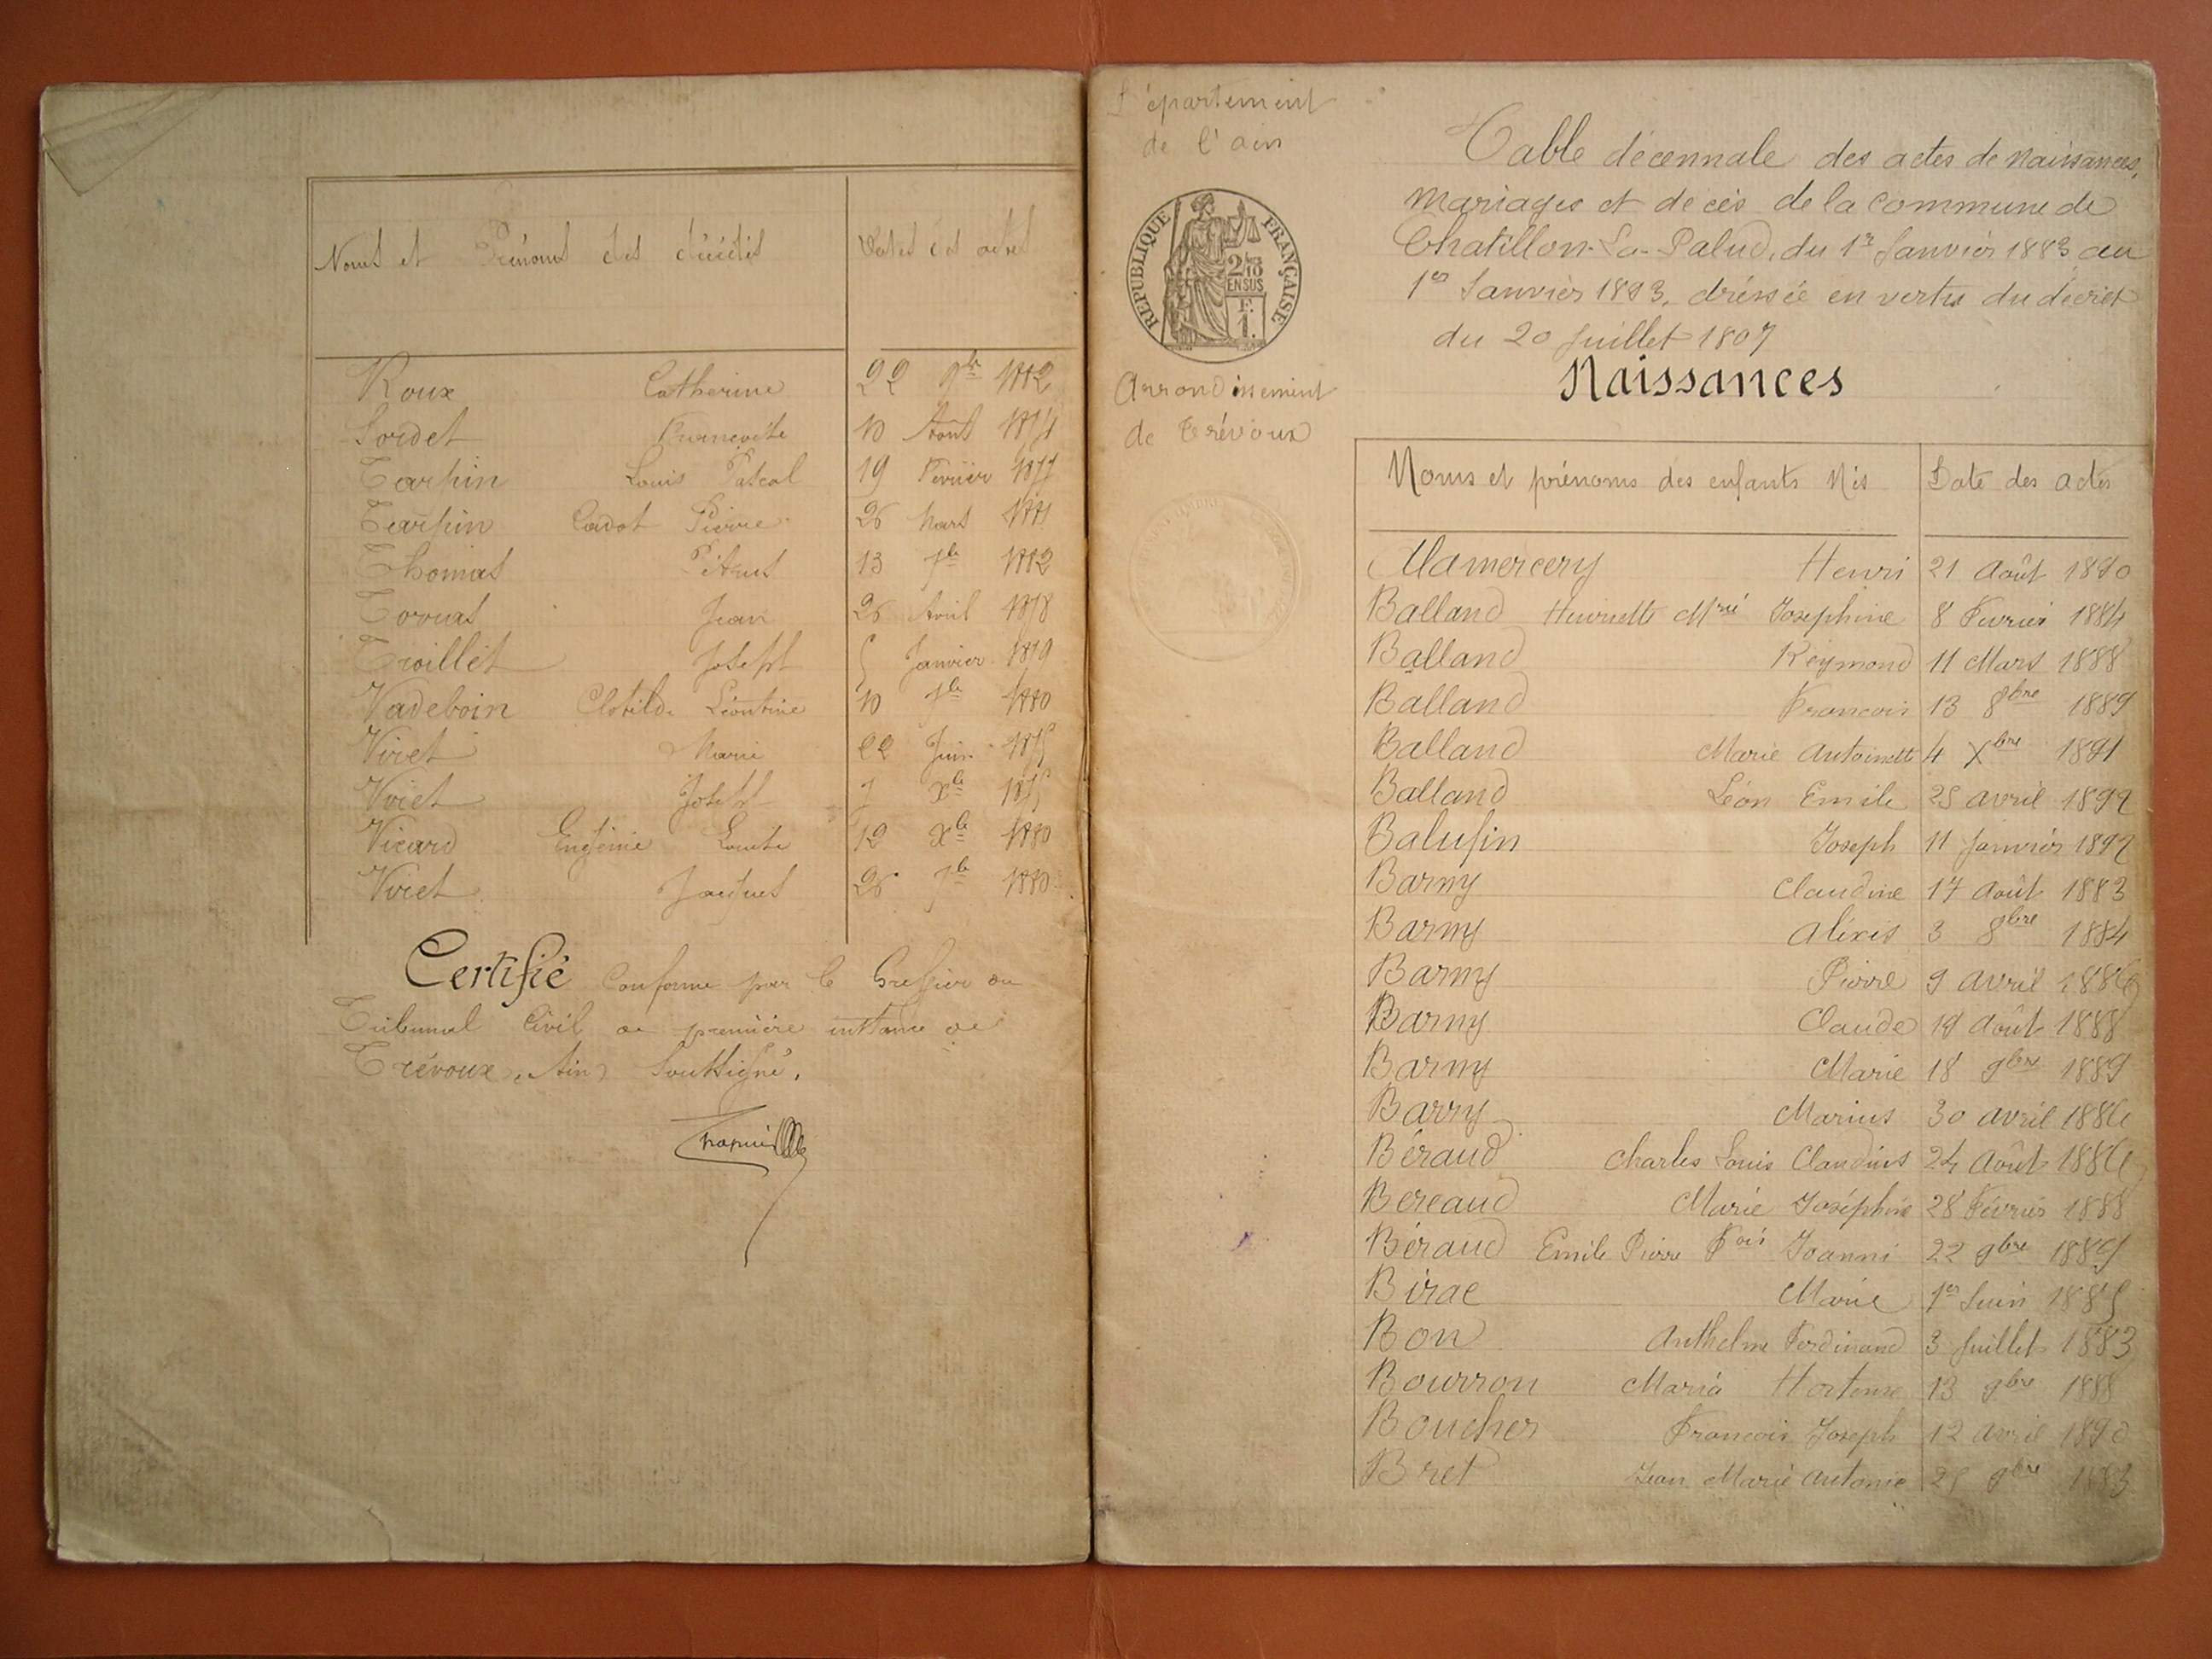 Noms et Prénoms des décédés
Dates des actes
Roux Catherine 22 9bre 1882
Sordet 10 Août 1874
Tarpin Louis Pascal 19 Février 1877
Tarpin Cadot Pierre 26 Mars 1881
Thomas Pétrus 13 7bre 1882
Jean 26 Avril 1878
Troillet Joseph 5 Janvier 1879
Vadeboin Clotilde Léontine 10 7bre 1880
Viret Marie 22 Juin 1875
Viret Joseph Xbre 1875
Vicard Eugénie 12 Xbre 1880
Viret Jacques 26 7bre 1880
Certifié conforme par le Greffier du
Tribunal Civil de première instance de
Trévoux (Ain) Soussigné.
Département
de l'ain
REPUBLIQUE FRANÇAISE
2/10
EN SUS
F.
1.
Arrondissement
de Trévoux
Table décennale des actes de naissances,
mariages et décès de la commune de
Chatillon-La-Palud, du 1er Janvier 1883 au
1er Janvier 1893, dréssée en vertu du décret
du 20 Juillet 1807
Naissances
Noms et prénoms des enfants Nés
Date des actes
Mamercery Henri 21 Août 1890
Balland Henriette Mrie Josephine 8 Fevrier 1884
Balland Reymond 11 Mars 1888
Balland Francois 13 8bre 1889
Balland Marie Antoinette 4 Xbre 1891
Balland Léon Emile 25 avril 1892
Balufin Joseph 11 Janvier 1892
Barny Claudine 17 Août 1883
Barny Aléxis 3 8bre 1884
Barny Pierre 9 avril 1886
Barny Claude 19 Août 1888
Barny Marie 18 9bre 1889
Barry Marius 30 avril 1886
Béraud Charles Louis Claudius 24 Août 1886
Bereaud Marie Joséphine 28 Février 1888
Béraud Emile Pierre Fois Joanni 22 9bre 1889
Birac Marie 1er Juin 1885
Bon Anthelme Ferdinand 3 Juillet 1883
Bourron Maria Hortense 13 9bre 1888
Boucher Francois Joseph 12 avril 1890
Bret Jean Marie Antoine 25 9bre 1883